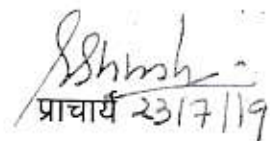 प्राचार्य 23/7/19